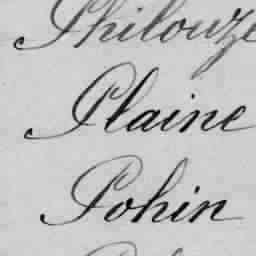 Philouze
Plaine
Pohin